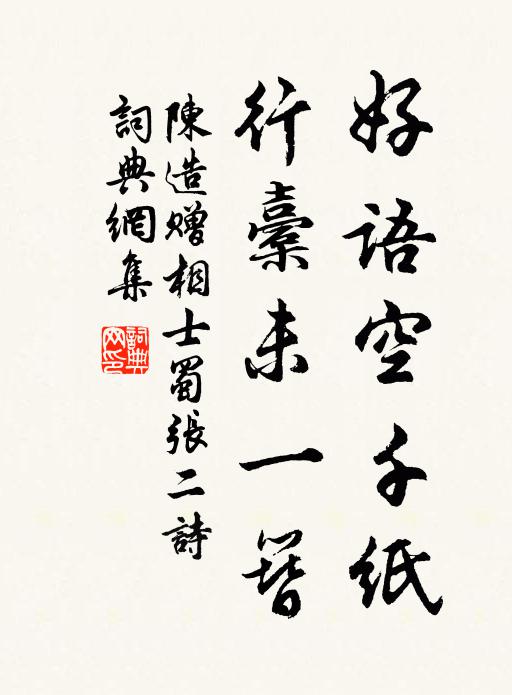 好語空千紙
行橐未一簪
陳造贈相士蜀張二詩
詞典網集
詞典網印